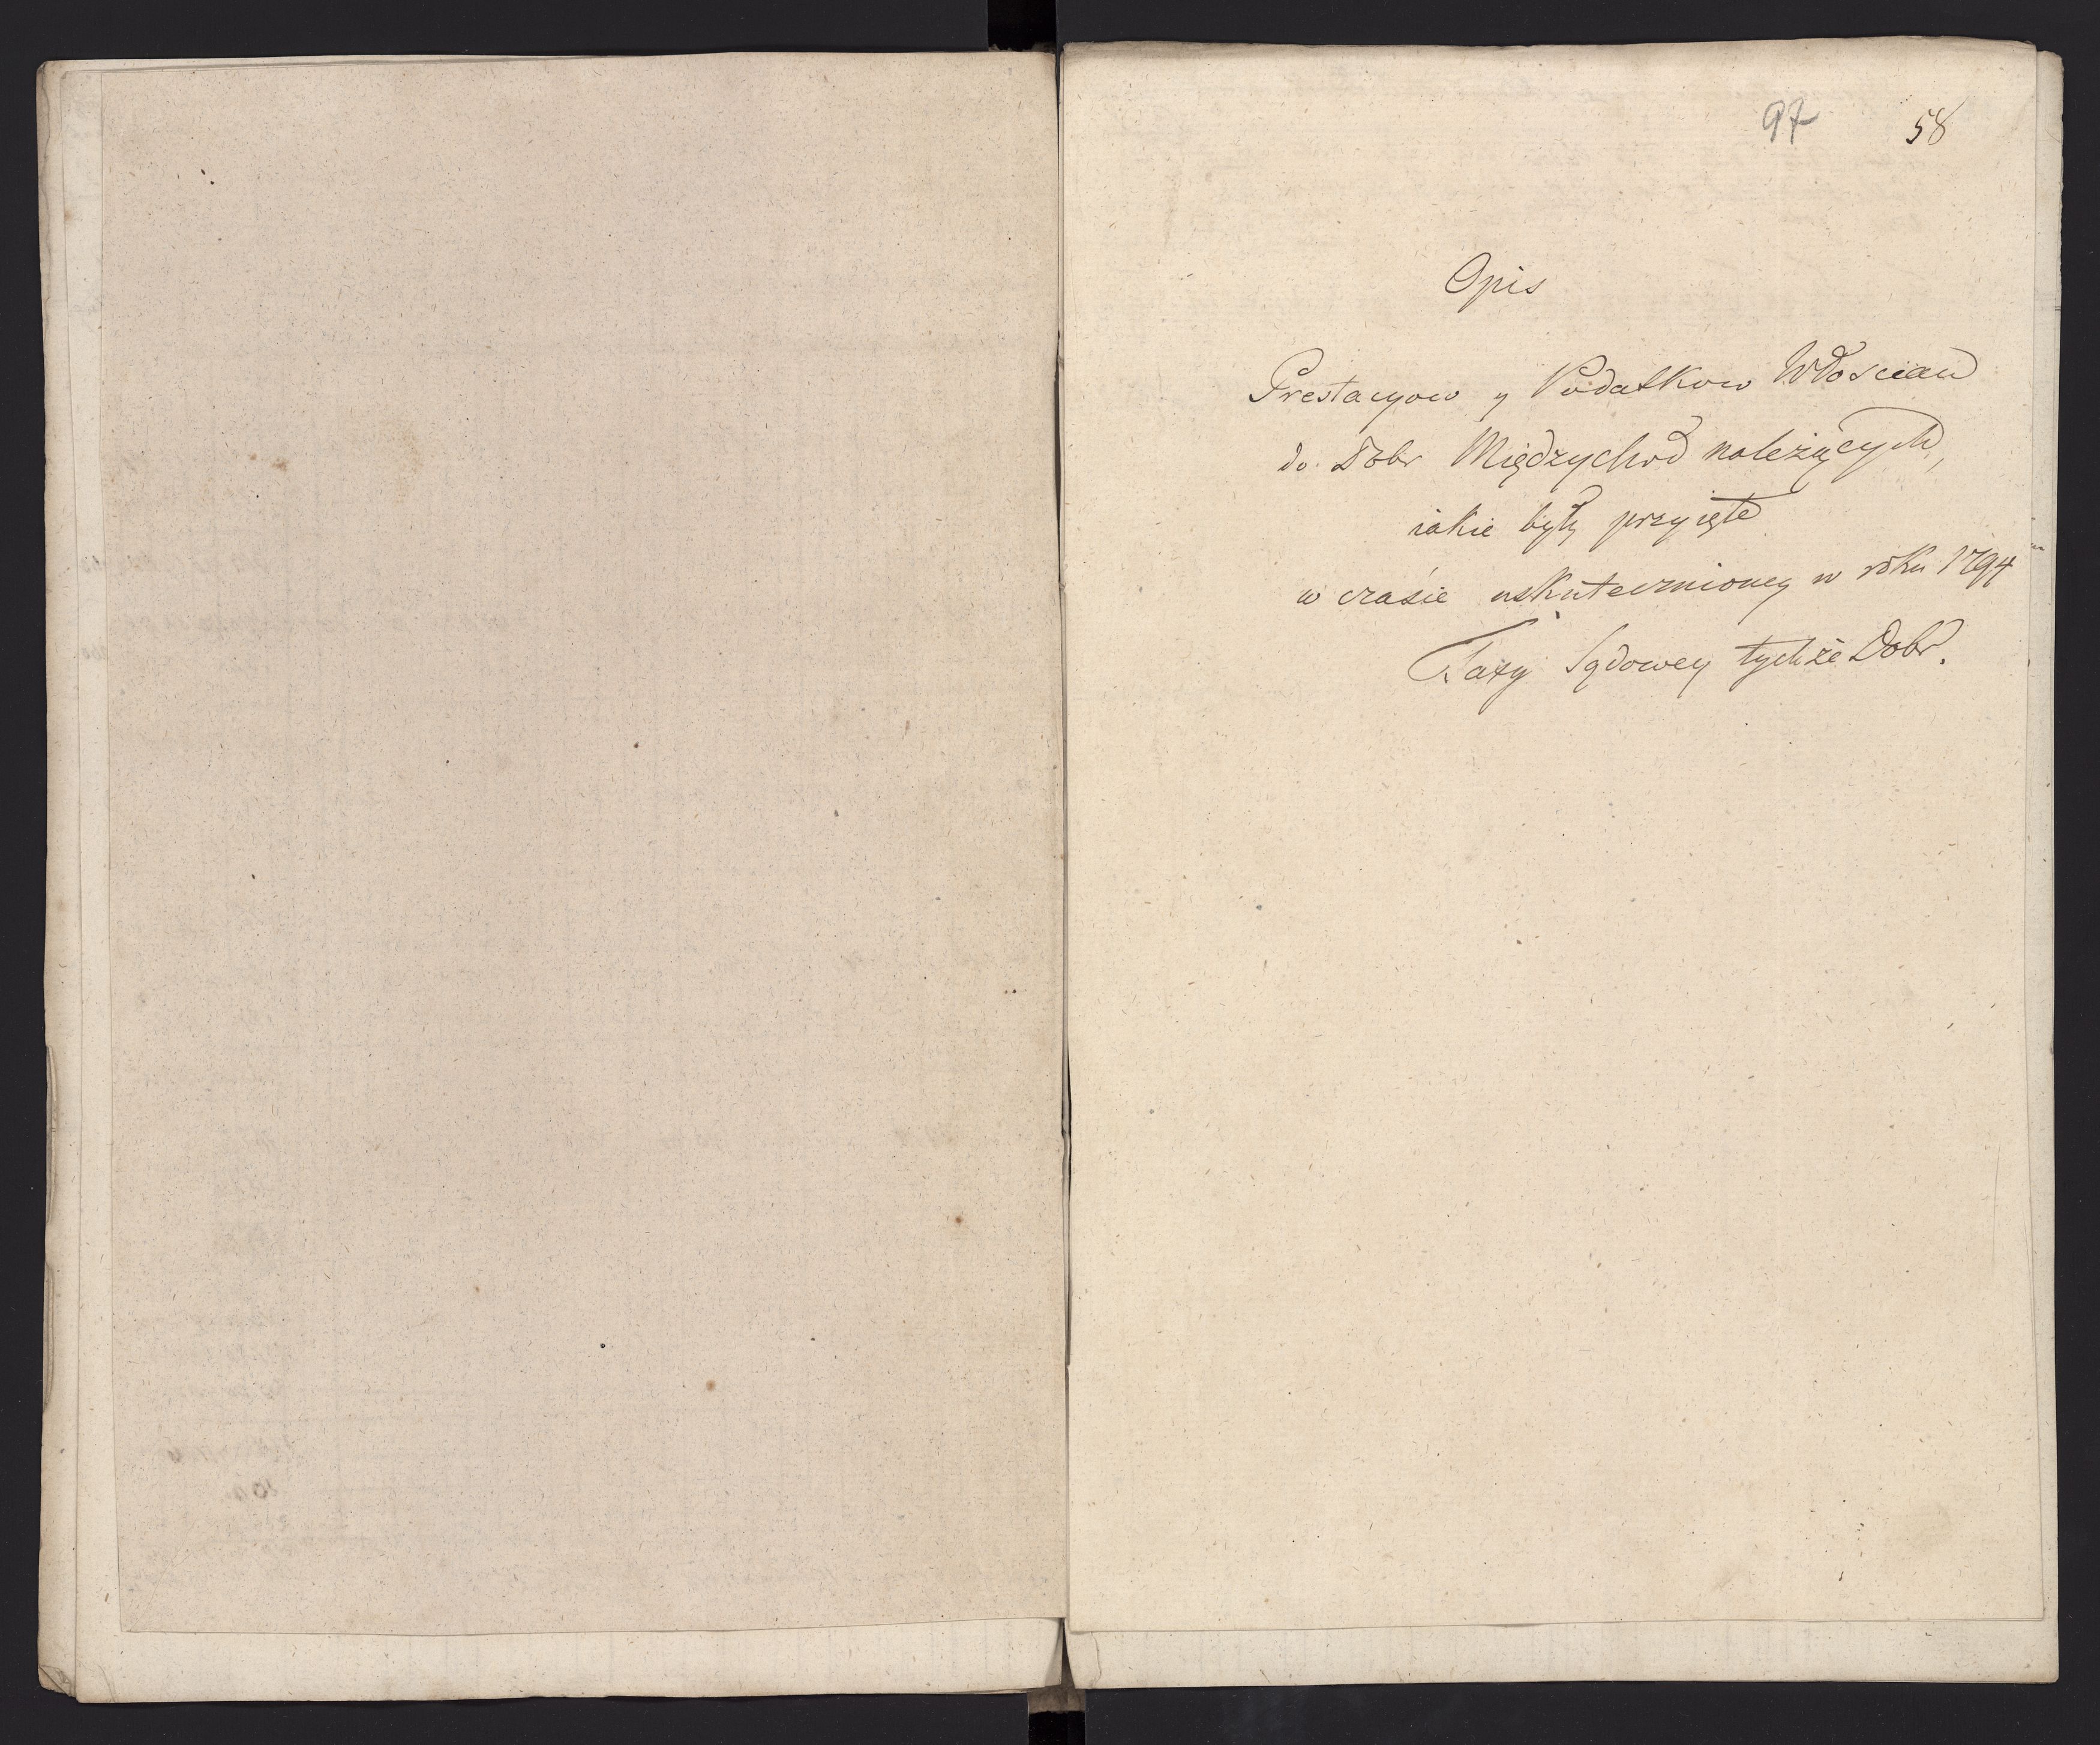 97 58
Opis
Prestacyow y Podatkow Włoscian
do Dobr Międzychod należących,
iakie były przyięte
w czasie uskutecznioney w roku 1794
Taxy Sądowey tychże Dobr.